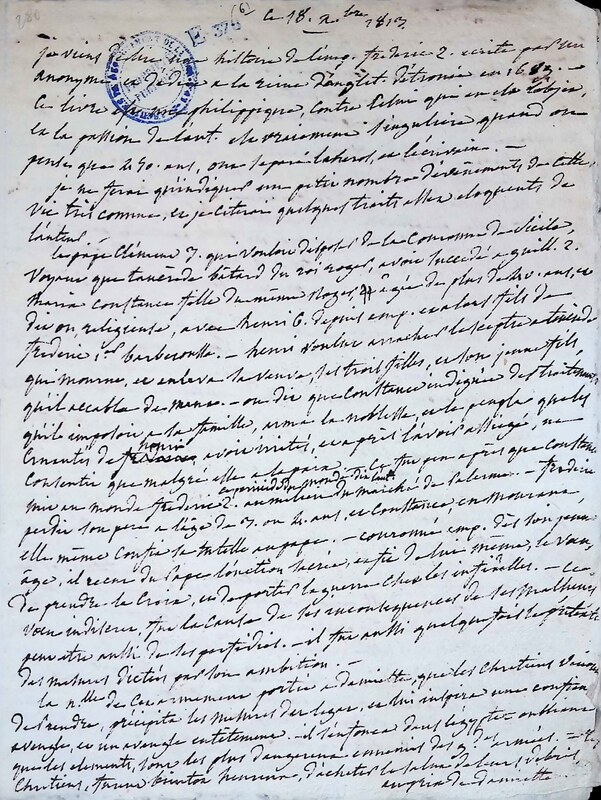 280
(6)
E 376
ce 18. Xbre 1813
je viens de lire une histoire de l'emp. frederic 2. ecrite par un
anonyme et dediée a la reine d'anglet. détronée en 16
Ce livre est une philippique, contre celui qui en est l'objet,
la passion de l'aut. est vraiment singuliere quand on
pense que 240. ans, ont separé le heros, et l'écrivain. —
je ne ferai qu'indiquer un petit nombre d'évenements de cette
vie très connue, et je citerai quelques traits assez eloquents de
l'auteur.
le pape Clément 3. qui vouloit disposer de la Couronne de Sicile,
voyant que tancrede bâtard du roi roger, avoit succédé a guill. 2.
maria constance fille du même roger, agée de plus de 50. ans, et
dit on, religieuse, avec henri 6. depuis emp. et alors fils de
frederic 1er barberousse. — henri voulut arracher le sceptre a tancrede
qui mourut, et enleva sa veuve, ses trois filles, et son jeune fils
qu'il accabla de maux. — on dit que Constance indignée des traitements
qu'il imposoit a sa famille, arma la noblesse, et le peuple que les
Cruautés de henri avoit irrités, et après l'avoir assiégé, ne
Consentit que malgré elle a la paix. — Ce fut peu après que Constance
mit au monde frederic 2. au milieu du marché de palerme. — frederic
perdit son pere a l'âge de 3. ou 4. ans, et Constance, en mourant,
elle même confia sa tutelle au pape. — couronné emp. dès son jeune
age, il recut du Pape l'onction sacrée, et fit de lui même, le voeu
de prendre la Croix, et de porter la guerre chez les infidelles. — Ce
voeu indiscret, fut la cause de ses inconsequences de ses malheurs
peut etre aussi de ses perfidies. — il fut aussi quelque fois le prétexte
des mesures dictées par son ambition. —
la nlle de cet armement portée a damiette, que les Chrétiens venoient
de prendre, précipita les mesures du legat, et lui inspira une confiance
aveugle, et un aveugle entêtement. — il s'enfonca dans l'égypte oubliant
que les elements, sont les plus dangereux ennemis des gdes armées. —
Chrétiens, furent bientot heureux, d'acheter le salut de leurs debris
au prix de damiette